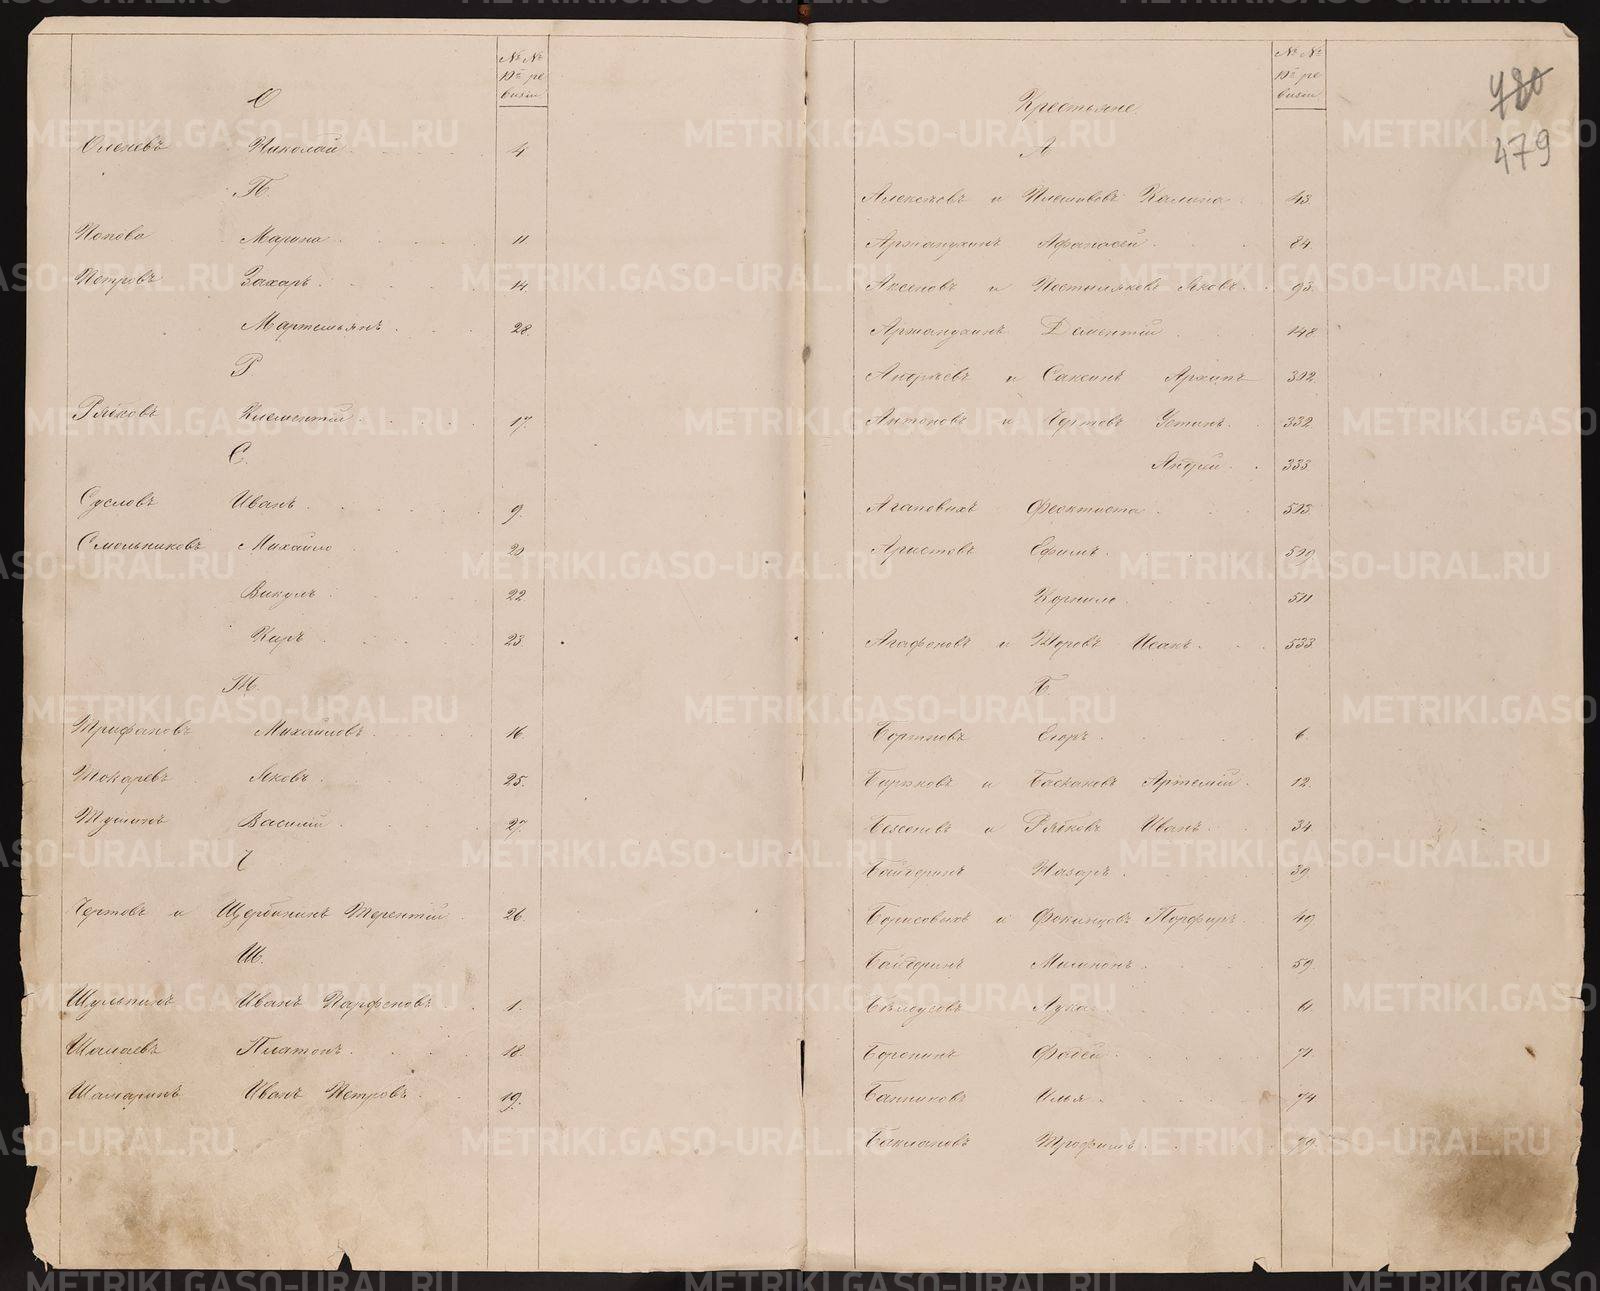 № №
10й ре
визіи
О
Оленевъ Николай 4
П.
Попова Марина 11.
Петровъ Захаръ 14.
Мартемьянъ 28.
Р
Рябковъ Климентій 17.
С.
Сусловъ Иванъ 9.
Смольниковъ Михайло 20
Викулъ 22
Киръ 23
Т.
Трифановъ Михайловъ 16
Токаревъ Яковъ 25.
Василій 27.
Ч
Чертовъ и Щербининъ Терентій 26.
Ш.
Шульгинъ Иванъ Парфеновъ 1.
Шалаевъ Платонъ 18.
Шамаринъ Иванъ Петровъ 19.
480
479
№ №
10й ре
визіи
Крестьяне.
А
Алексѣевъ и Плешковъ Калина 43.
Аржанухинъ Афанасій 84.
Аксеновъ и Постыляковъ Яковъ 93.
Аржанухинъ Дементій 148
Андреевъ и Саксинъ Архипъ 302.
Антоновъ и Чертовъ Устинъ 332
Андрей 333
Агаповыхъ Феоктиста 503
Аристовъ Ефимъ 509
Корнило 511
Агафоновъ и Исакъ 533
Б
Бортновъ Егоръ 6
и Баскаковъ Артемій 12.
и Рябковъ Иванъ 34
Байдеринъ Назаръ 39
Борисовыхъ и Порфиръ 49
Байдеринъ 59
Бѣлоусовъ Лука 61
Боронинъ Фадей 71.
Банниковъ Илья 74
Баклановъ Трофимъ 79.
METRIKI.GASO-URAL.RU